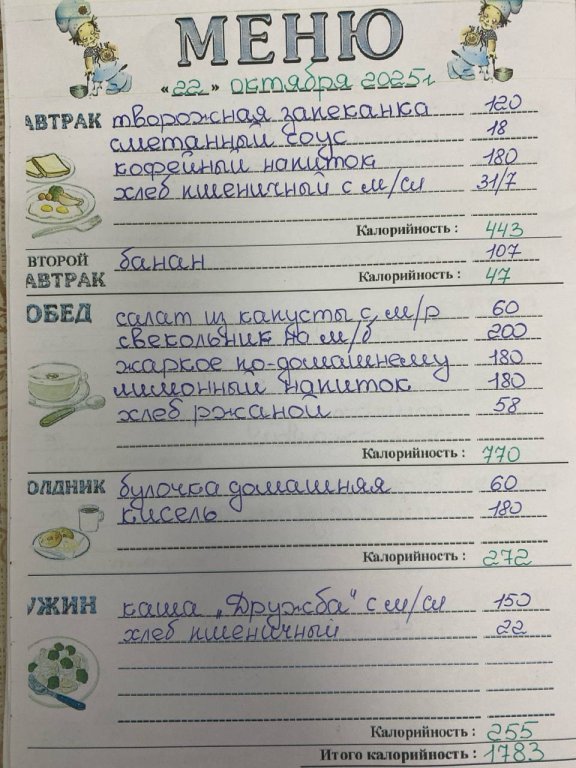 МЕНЮ
«22» октября 2025г
АВТРАК творожная запеканка 120
сметанный соус 18
кофейный напиток 180
хлеб пшеничный с м/сл 31/7
Калорийность : 443
ВТОРОЙ банан 107
АВТРАК Калорийность : 47
ОБЕД салат из капусты с м/р 60
свекольник на м/б 200
жаркое по-домашнему 180
лимонный напиток 180
хлеб ржаной 58
Калорийность : 770
ОЛДНИК булочка домашняя 60
кисель 180
Калорийность : 272
УЖИН каша „Дружба" с м/сл 150
хлеб пшеничный 22
Калорийность : 255
Итого калорийность : 1783